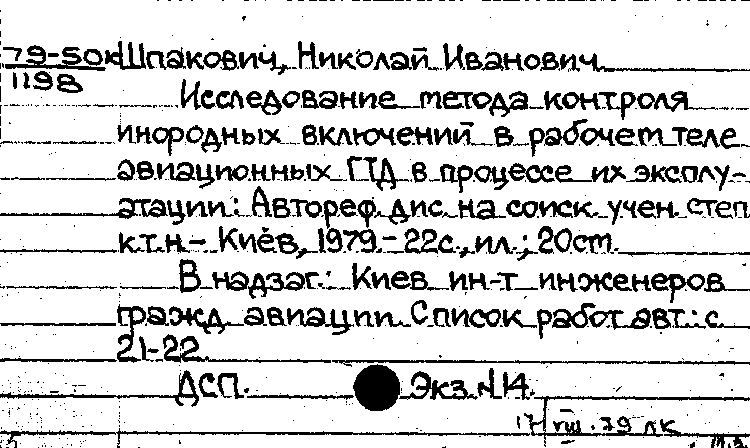 79-50к Шпакович, Николай Иванович
1198
Исследование метода контроля
инородных включений в рабочем теле
авиационных ГТД в процессе их эксплу-
атации: Автореф. дис. на соиск. учен. степ.
к.т.н. - Киев, 1979. - 22с., ил.; 20см.
В надзаг.: Киев. ин-т инженеров
гражд. авиации. Список работ авт.: с.
21-22.
ДСП. Экз. N14.